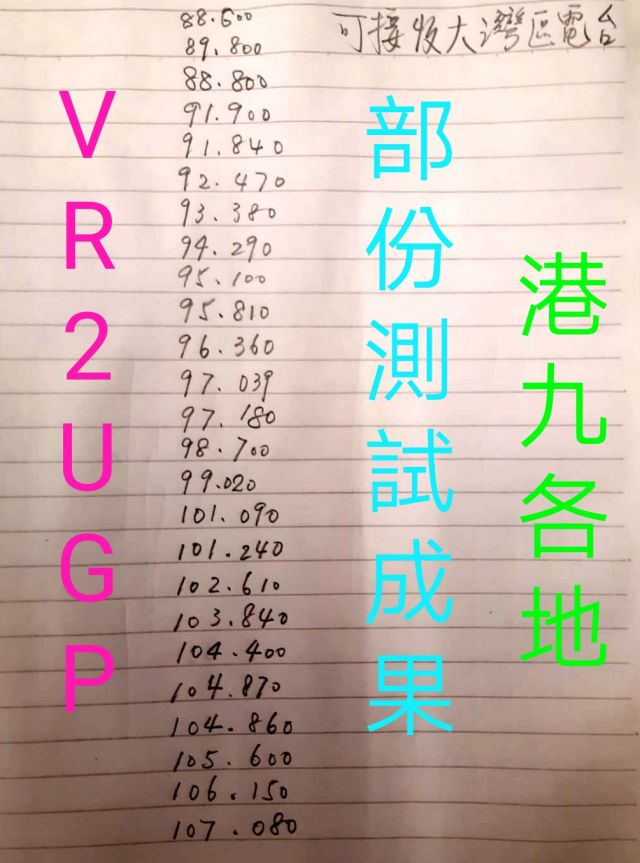 88.600
可接收大灣區電台
89.800
88.800
91.900
91.840
92.470
93.380
94.290
95.100
95.810
96.360
97.039
97.180
98.700
99.020
101.090
101.240
102.610
103.840
104.400
104.870
104.860
105.600
106.150
107.080
VR2UGP
部份測試成果
港九各地